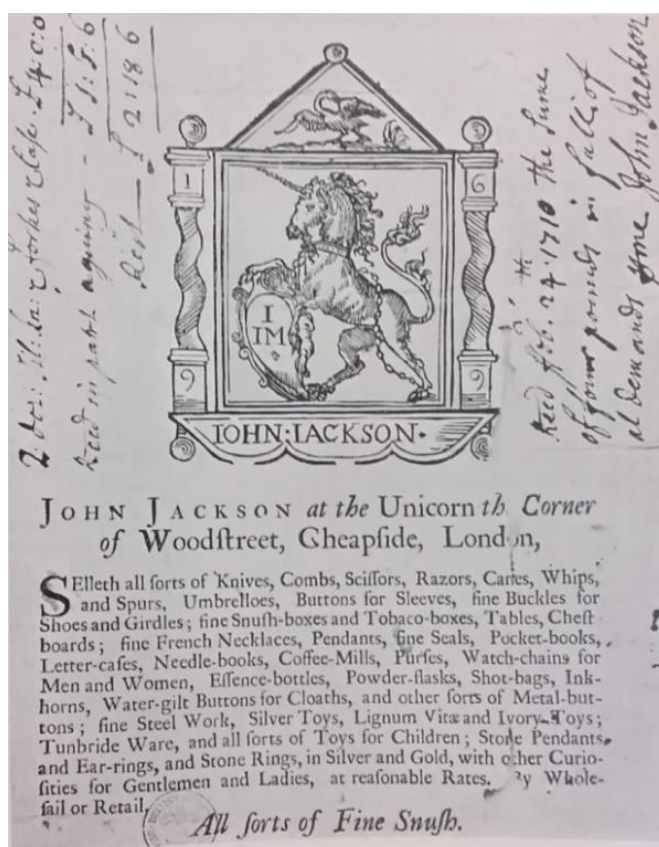 2 doz: Il: la: Forkes & Case. £4:0:0
Reed in patt aguing - £1:1:6
Rest — £2:18:6
1 6
I
IM
9 9
IOHN·IACKSON·
Reed feb. 24th. 1710 the sume
of foure pounds in full of
al demands me John Jackson
JOHN JACKSON at the Unicorn th Corner
of Woodſtreet, Cheapſide, London,
SElleth all ſorts of Knives, Combs, Sciſſors, Razors, Canes, Whips,
and Spurs, Umbrelloes, Buttons for Sleeves, fine Buckles for
Shoes and Girdles; fine Snuſh-boxes and Tobaco-boxes, Tables, Cheſt
boards; fine French Necklaces, Pendants, fine Seals, Pocket-books,
Letter-caſes, Needle-books, Coffee-Mills, Purſes, Watch-chains for
Men and Women, Eſſence-bottles, Powder-flasks, Shot-bags, Ink-
horns, Water-gilt Buttons for Cloaths, and other ſorts of Metal-but-
tons; fine Steel Work, Silver Toys, Lignum Vitæ and Ivory-Toys;
Tunbride Ware, and all ſorts of Toys for Children; Stone Pendants
and Ear-rings, and Stone Rings, in Silver and Gold, with other Curio-
ſities for Gentlemen and Ladies, at reaſonable Rates. By Whole-
ſail or Retail.
All ſorts of Fine Snuſh.